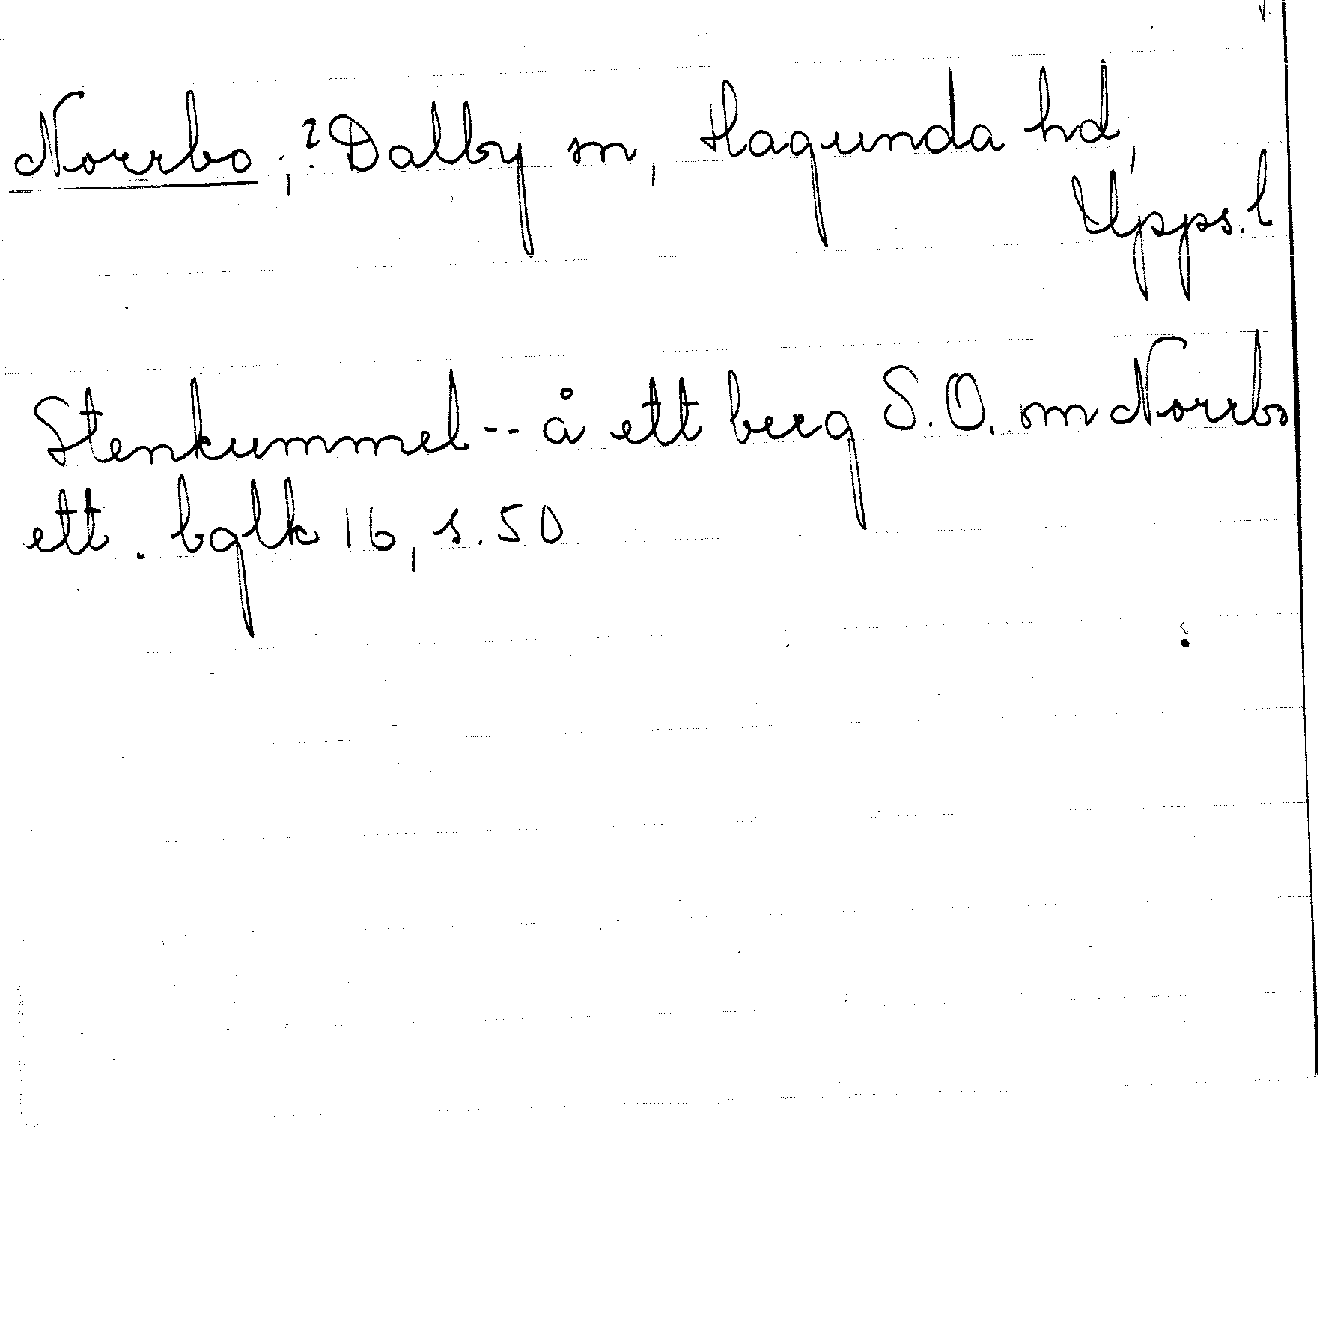 Norrbo, ? Dalby sn, Hagunda hd,
Upps. l
Stenkummel -- å ett berg S.O. om Norrbo
ett. bglk 16, s. 50